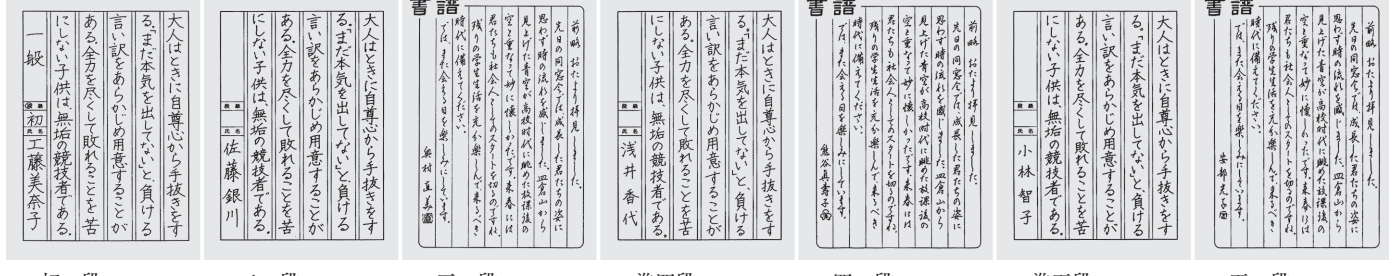 大人はときに自尊心から手抜きをす
る。「まだ本気を出してない」と、負ける
言い訳をあらかじめ用意することが
ある。全力を尽くして敗れることを苦
にしない子供は、無垢の競技者である。
一般
段級 初 氏名 工藤美奈子
大人はときに自尊心から手抜きをす
る。「まだ本気を出してない」と、負ける
言い訳をあらかじめ用意することが
ある。全力を尽くして敗れることを苦
にしない子供は、無垢の競技者である。
段級 氏名 佐藤銀川
書譜
前略 おたより拝見しました。
先日の同窓会では、成長した君たちの姿に
思わず時の流れを感じました。皿倉山から
見上げた青空が高校時代に眺めた放課後の
空と重なって妙に懐しかったです。来春には
君たちも社会人としてのスタートを切るのですね。
残りの学生生活を充分楽しんで来るべき
時代に備えてください。
では、また会える日を楽しみにしています。
奥村直美
大人はときに自尊心から手抜きをす
る。「まだ本気を出してない」と、負ける
言い訳をあらかじめ用意することが
ある。全力を尽くして敗れることを苦
にしない子供は、無垢の競技者である。
段級 氏名 浅井香代
書譜
前略 おたより拝見しました。
先日の同窓会では、成長した君たちの姿に
思わず時の流れを感じました。皿倉山から
見上げた青空が高校時代に眺めた放課後の
空と重なって妙に懐しかったです。来春には
君たちも社会人としてのスタートを切るのですね。
残りの学生生活を充分楽しんで来るべき
時代に備えてください。
では、また会える日を楽しみにしています。
熊谷真香子
大人はときに自尊心から手抜きをす
る。「まだ本気を出してない」と、負ける
言い訳をあらかじめ用意することが
ある。全力を尽くして敗れることを苦
にしない子供は、無垢の競技者である。
段級 氏名 小林智子
書譜
前略 おたより拝見しました。
先日の同窓会では、成長した君たちの姿に
思わず時の流れを感じました。皿倉山から
見上げた青空が高校時代に眺めた放課後の
空と重なって妙に懐しかったです。来春には
君たちも社会人としてのスタートを切るのですね。
残りの学生生活を充分楽しんで来るべき
時代に備えてください。
では、また会える日を楽しみにしています。
安部光子